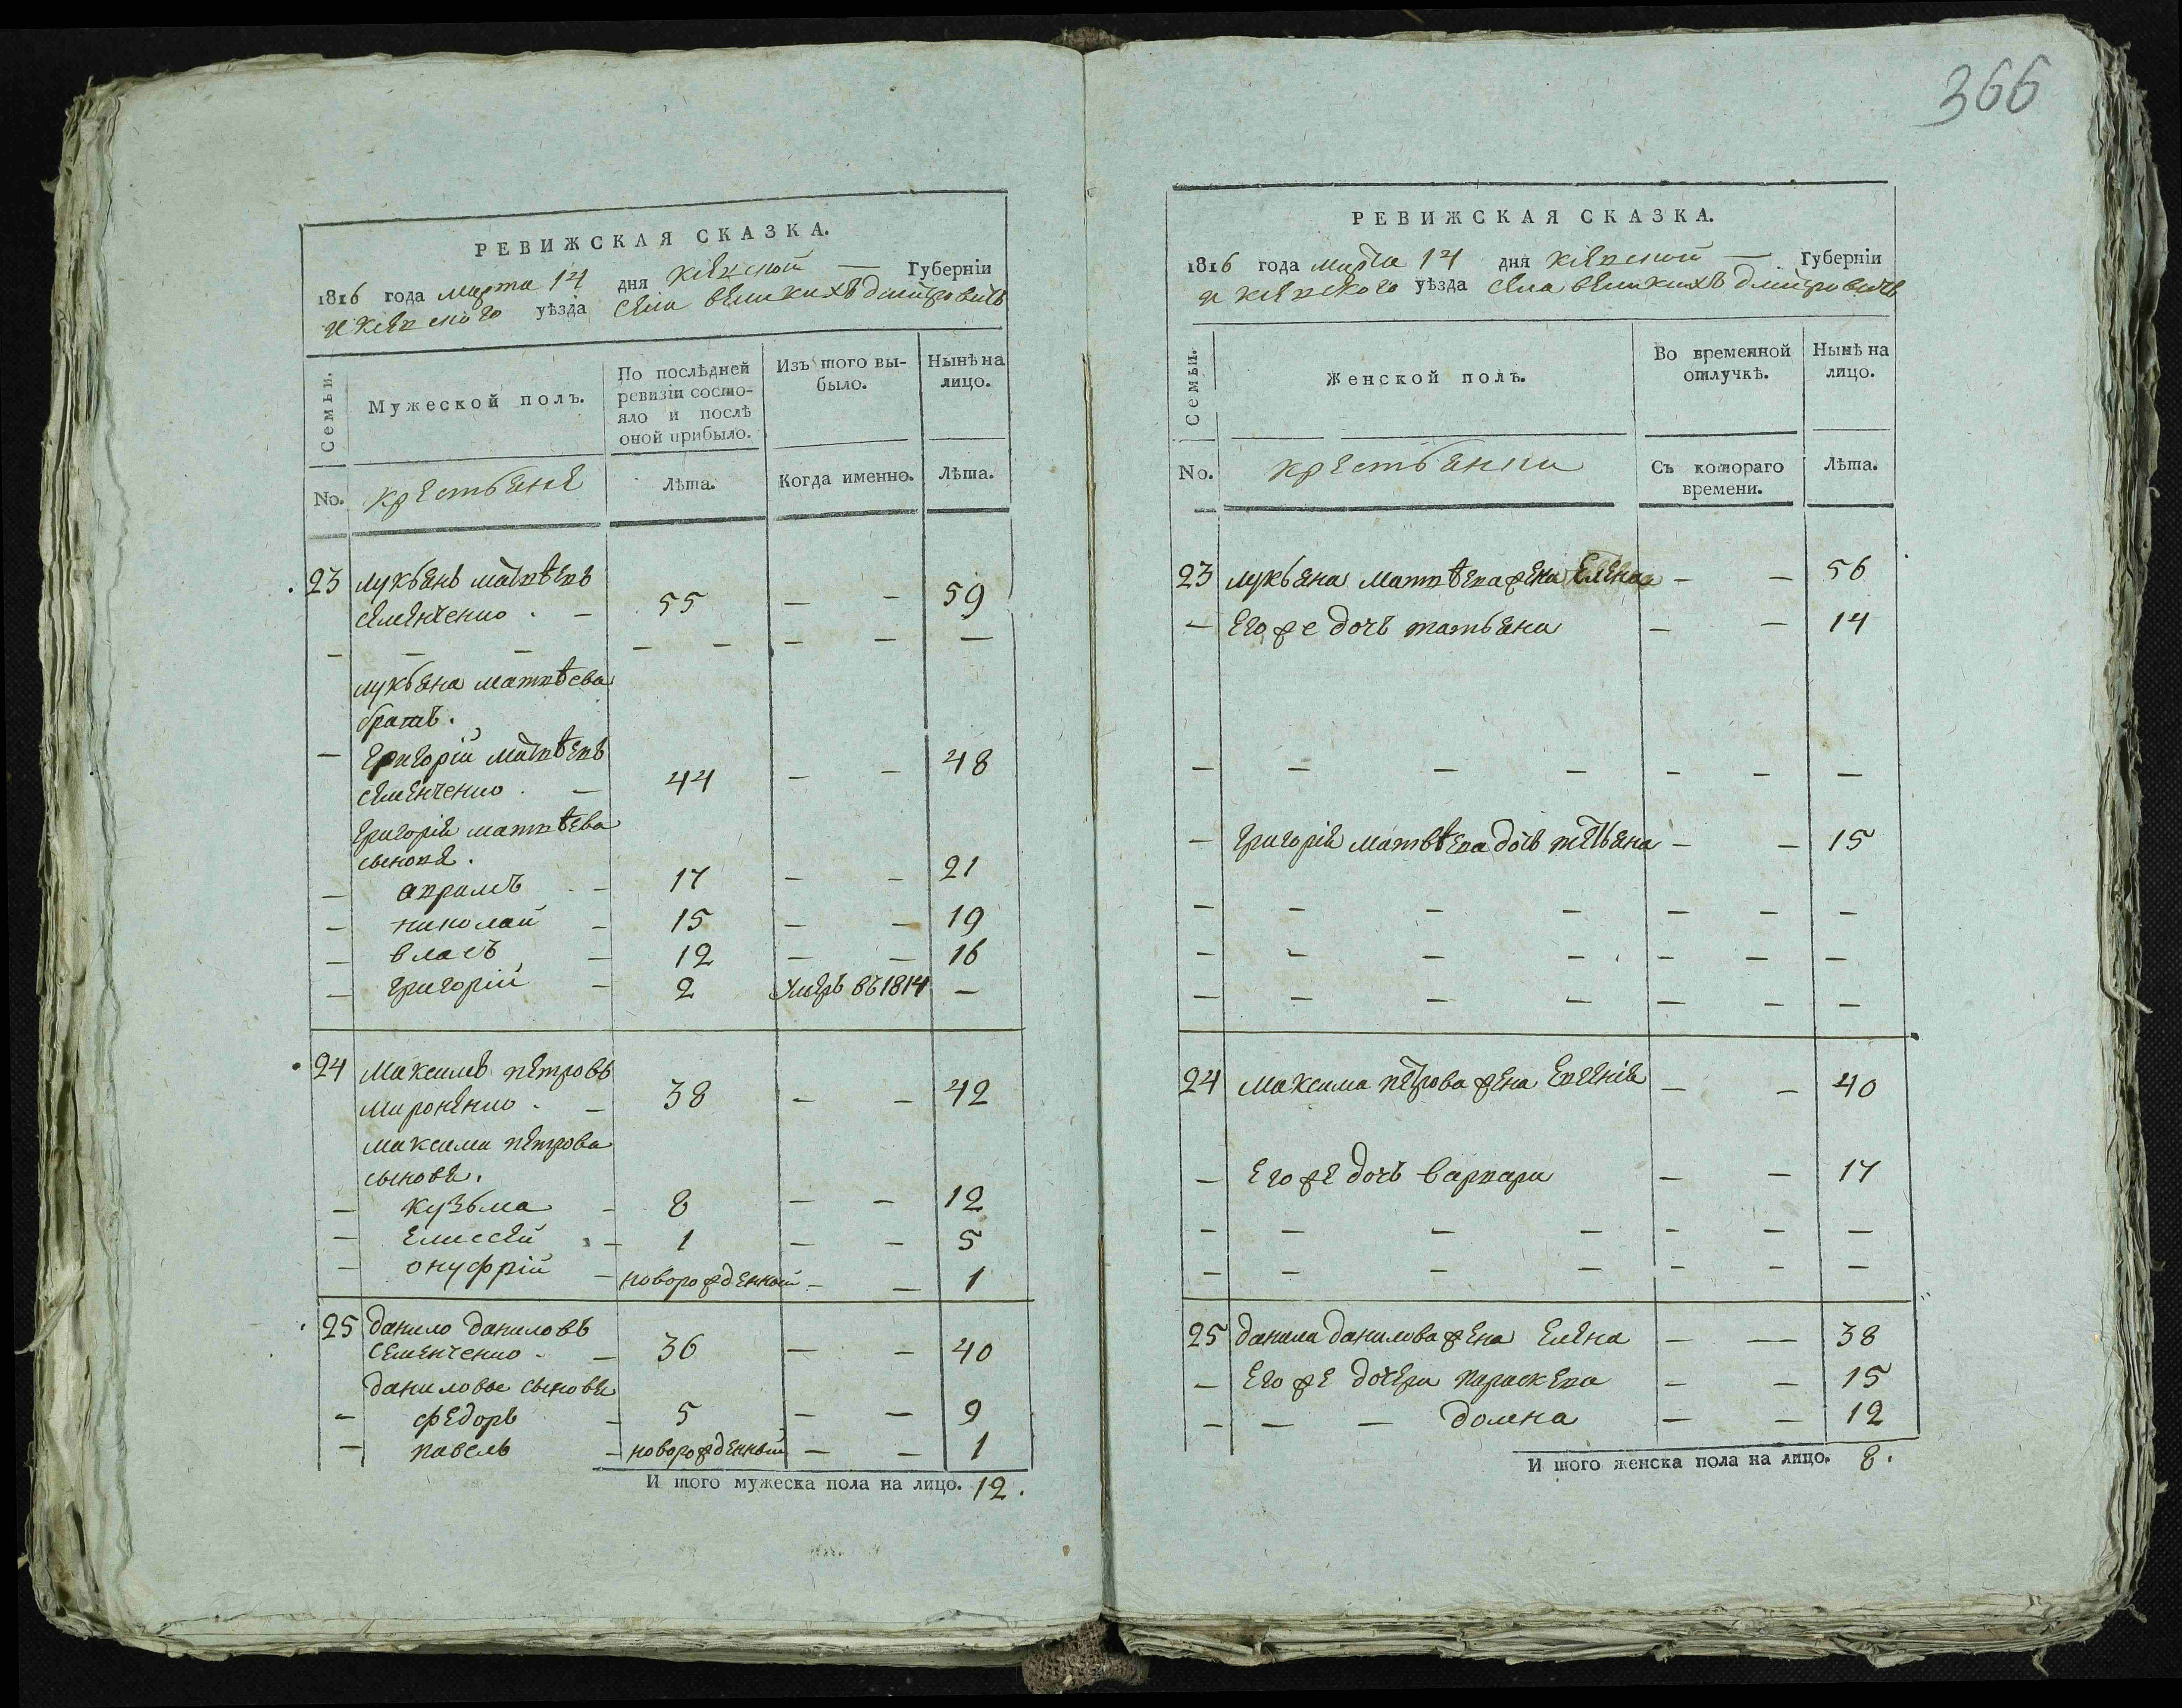 366
РЕВИЖСКАЯ СКАЗКА.
1816 года марта 14 дня кіевской — Губерніи
и кіевского уѣзда села великихъ дмитровичъ
Семьи.
Мужеской полъ.
По послѣдней ревизіи состояло и послѣ оной прибыло.
Изъ того выбыло.
Нынѣ на лицо.
No.
крестьяне
Лѣта.
Когда именно.
Лѣта.
23 лукьянъ матвѣевъ
семенченко . — 55 — — 59
— — — — — — — —
лукьяна матвѣева
братъ.
— григорій матвѣевъ
семенченко . — 44 — — 48
григорія матвѣева
сыновя.
— аврамъ — 17 — — 21
— николай — 15 — — 19
— власъ — 12 — — 16
— григорій — 2 умеръ въ 1814 —
24 максимъ петровъ
мироненко . — 38 — — 42
максима петрова
сыновя.
— кузьма — 8 — — 12
— елиссей — 1 — — 5
— онуфрій — новорожденный — — 1
25 данило даниловъ
семенченко . — 36 — — 40
даниловы сыновя
— федоръ — 5 — — 9
— павелъ — новорожденный — — 1
И того мужеска пола на лицо. 12.
РЕВИЖСКАЯ СКАЗКА.
1816 года марта 14 дня кіевской — Губерніи
и кіевского уѣзда села великихъ дмитровичъ
Семьи.
Женской полъ.
Во временной отлучкѣ.
Нынѣ на лицо.
No.
крестьянки
Съ котораго времени.
Лѣта.
23 лукьяна матвѣева жена Елена — — 56
— его же дочь татьяна — — 14
— — — — — — —
— григорія матвѣева дочь татьяна — — 15
— — — — — — —
— — — — — — —
— — — — — — —
24 максима петрова жена Евгенія — — 40
— его же дочь варвара — — 17
— — — — — — —
— — — — — — —
25 данила данилова жена Елена — — 38
— его же дочери параскева — — 15
— — — домна — — 12
И того женска пола на лицо. 8.